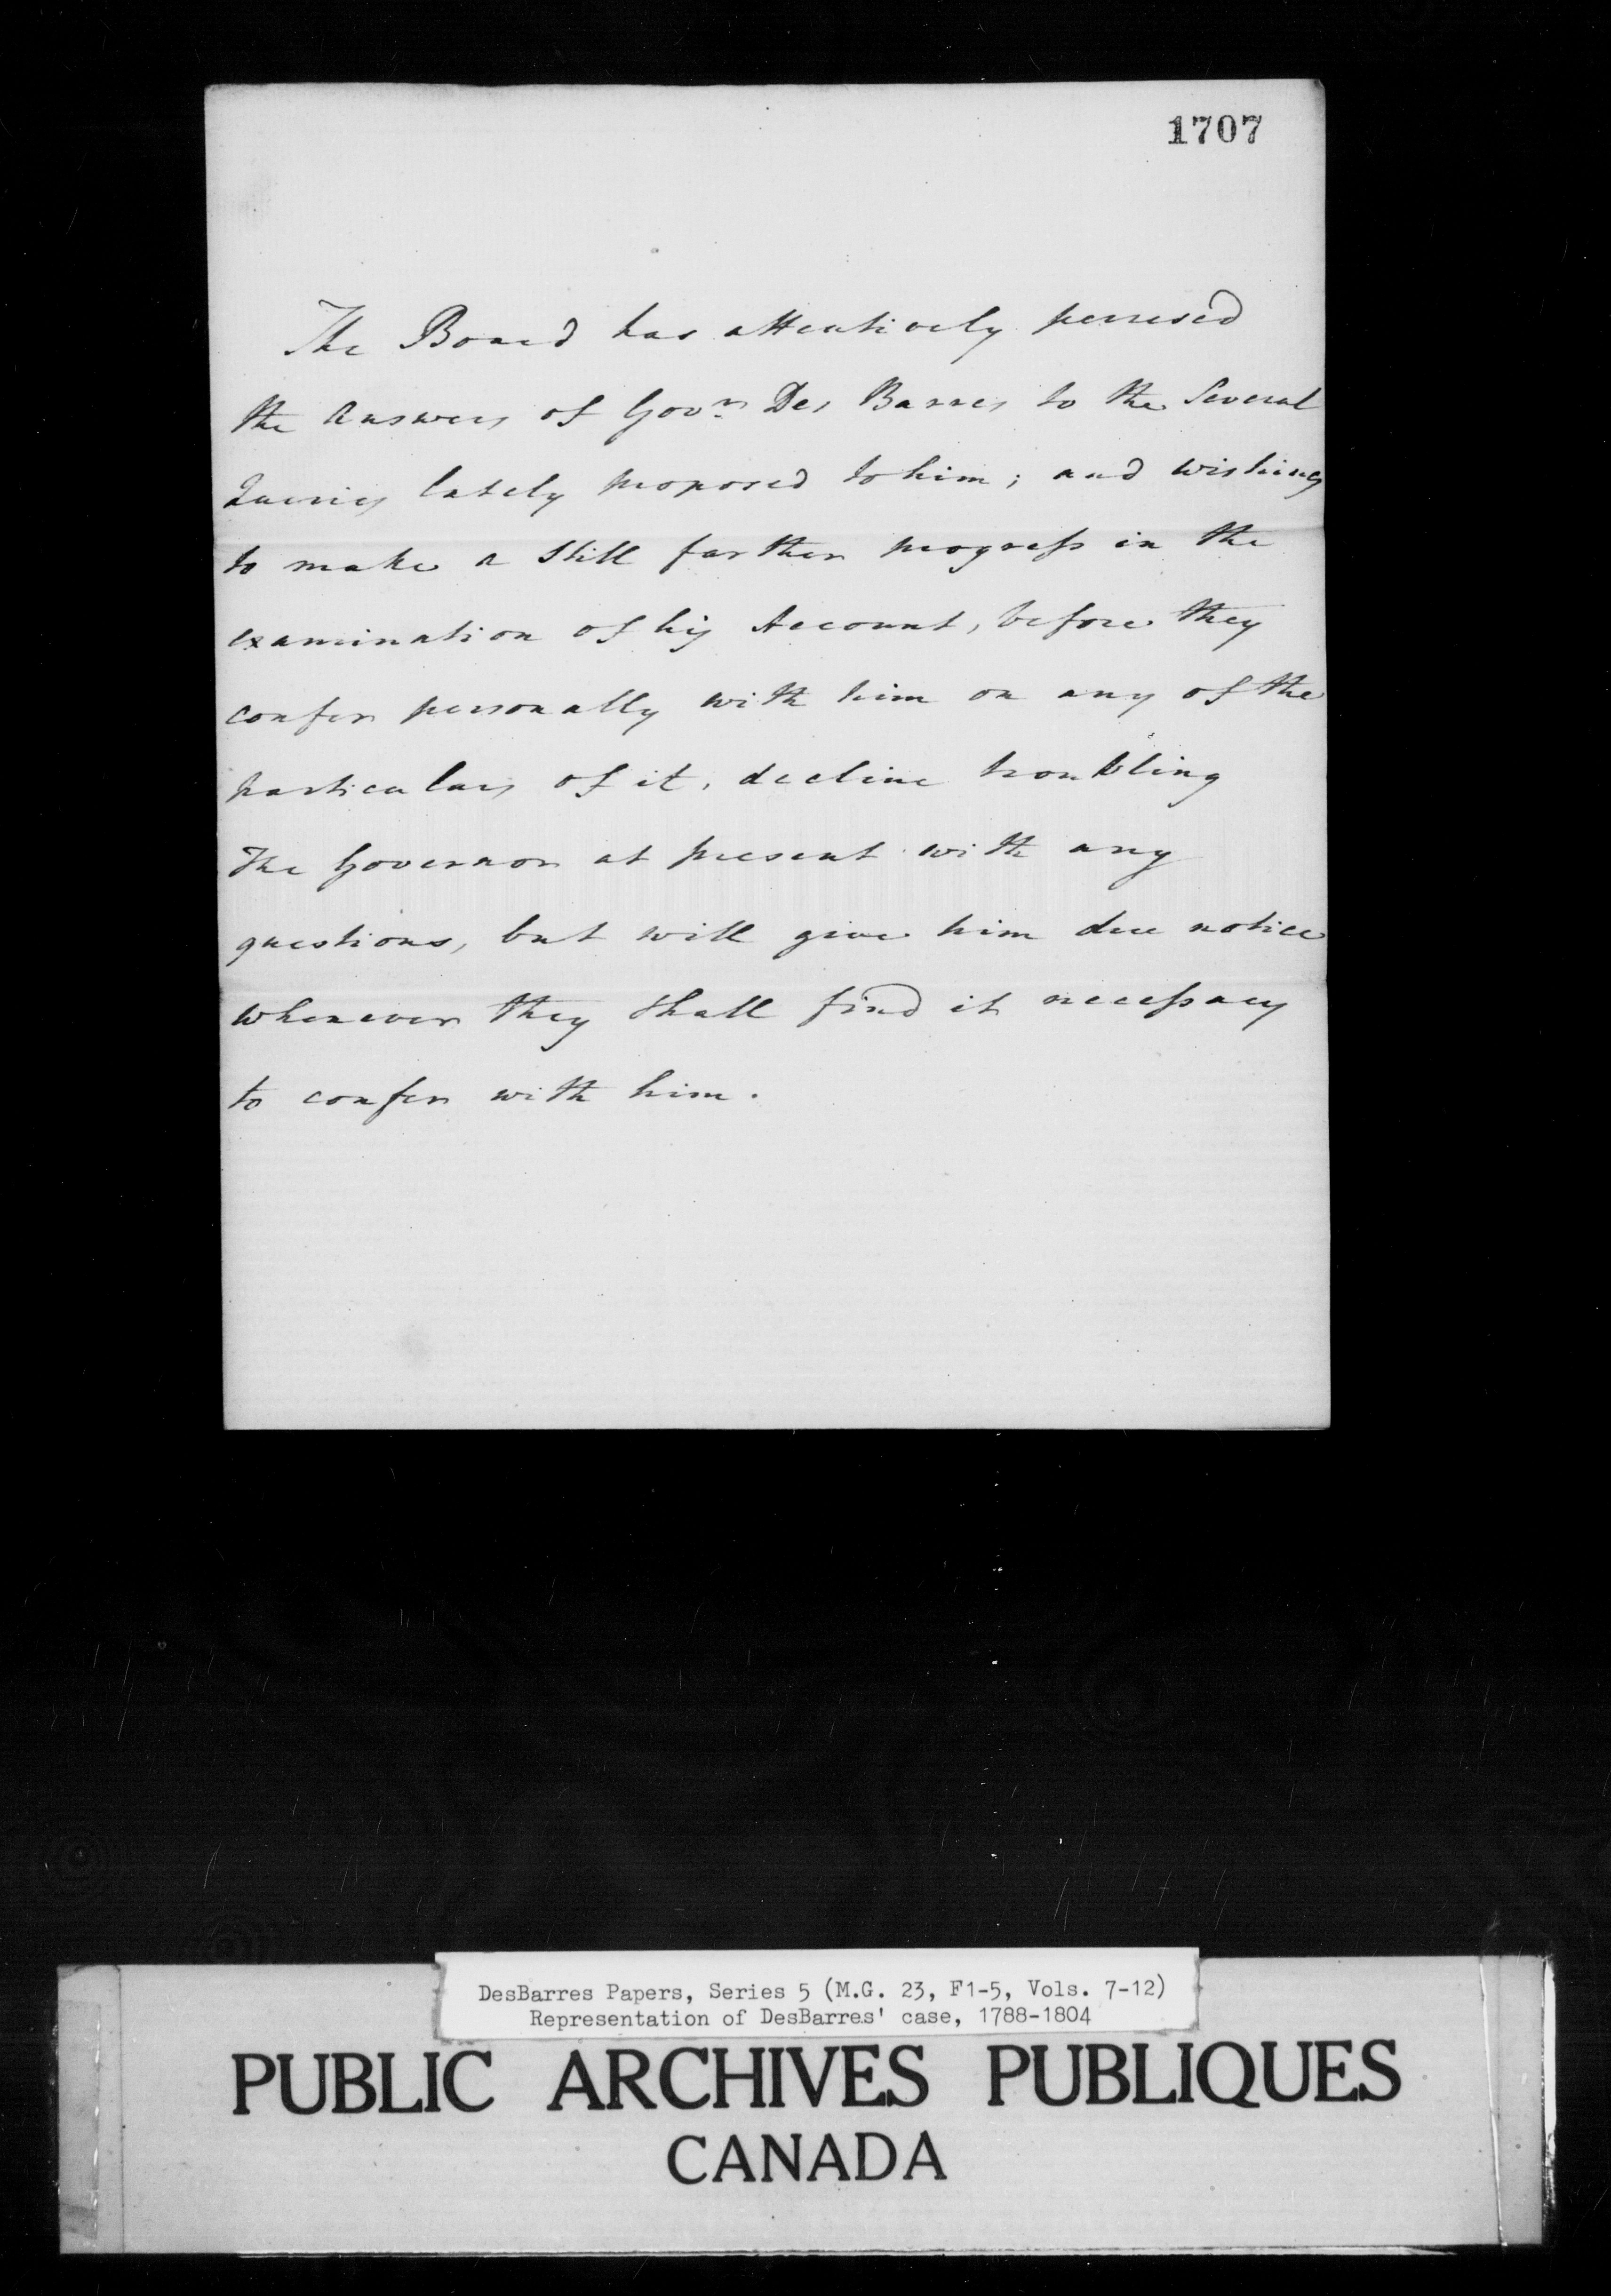 1707
The Board has attentively perused
the Answers of Govr. Des Barres to the Several
Queries lately proposed to him; and wishing
to make a Still farther progress in the
examination of his Account, before they
confer personally with him on any of the
particulars of it, decline troubling
the Governor at present with any
questions, but will give him due notice
whenever they Shall find it necessary
to confer with him.
DesBarres Papers, Series 5 (M.G. 23, F1-5, Vols. 7-12)
Representation of DesBarres' case, 1788-1804
PUBLIC ARCHIVES PUBLIQUES
CANADA